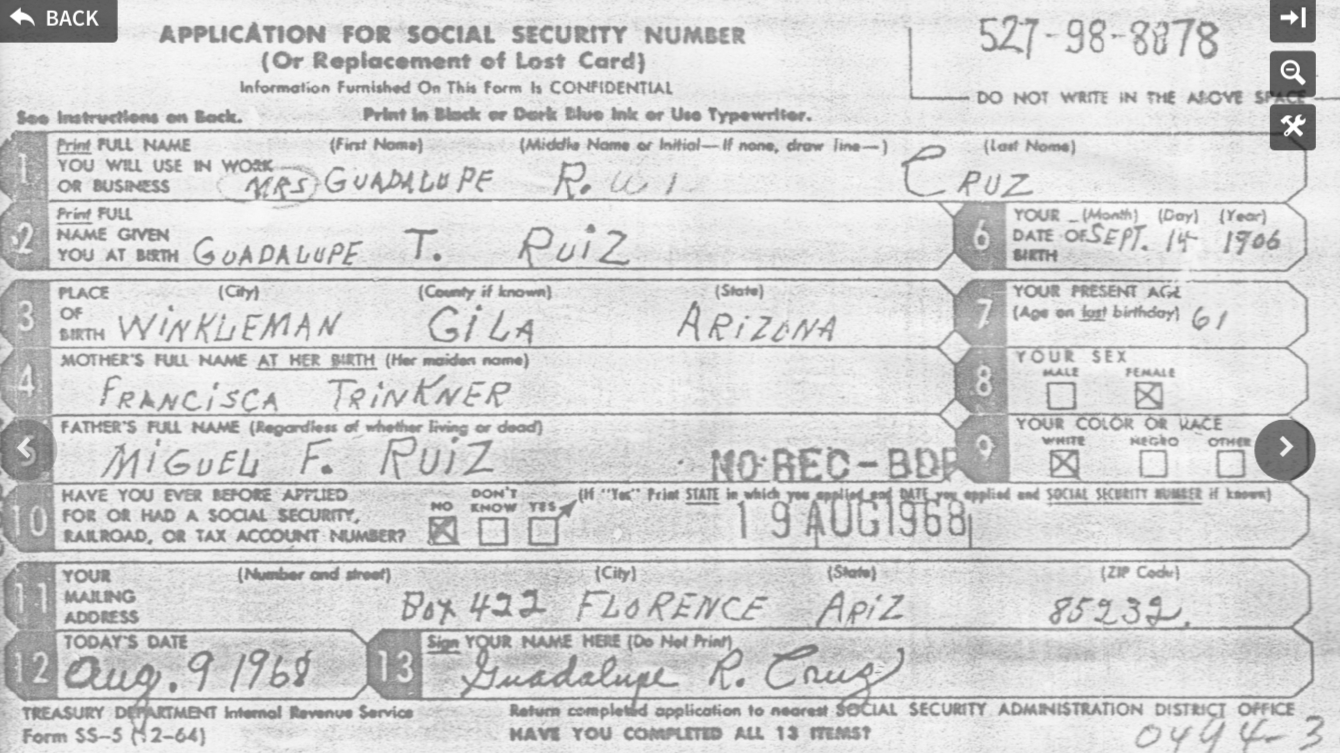 BACK
APPLICATION FOR SOCIAL SECURITY NUMBER
(Or Replacement of Lost Card)
Information Furnished On This Form Is CONFIDENTIAL
527-98-8878
DO NOT WRITE IN THE ABOVE SPACE
See Instructions on Back. Print in Black or Dark Blue Ink or Use Typewriter.
1 Print FULL NAME (First Name) (Middle Name or Initial—If none, draw line—) (Last Name)
YOU WILL USE IN WORK
OR BUSINESS MRS GUADALUPE R. CRUZ
2 Print FULL
NAME GIVEN
YOU AT BIRTH GUADALUPE T. RUIZ
6 YOUR (Month) (Day) (Year)
DATE OF SEPT. 14 1906
BIRTH
3 PLACE (City) (County if known) (State)
OF
BIRTH WINKLEMAN GILA ARIZONA
7 YOUR PRESENT AGE
(Age on last birthday) 61
4 MOTHER'S FULL NAME AT HER BIRTH (Her maiden name)
FRANCISCA TRINKNER
8 YOUR SEX
MALE FEMALE
5 FATHER'S FULL NAME (Regardless of whether living or dead)
MIGUEL F. RUIZ
NO REC - BDP
9 YOUR COLOR OR RACE
WHITE NEGRO OTHER
10 HAVE YOU EVER BEFORE APPLIED
FOR OR HAD A SOCIAL SECURITY,
RAILROAD, OR TAX ACCOUNT NUMBER?
NO DON'T KNOW YES
(If "Yes" Print STATE in which you applied and DATE you applied and SOCIAL SECURITY NUMBER if known)
19 AUG 1968
11 YOUR (Number and street) (City) (State) (ZIP Code)
MAILING
ADDRESS Box 422 FLORENCE ARIZ 85232.
12 TODAY'S DATE
Aug. 9 1968
13 Sign YOUR NAME HERE (Do Not Print)
Guadalupe R. Cruz
TREASURY DEPARTMENT Internal Revenue Service
Form SS-5 (12-64)
Return completed application to nearest SOCIAL SECURITY ADMINISTRATION DISTRICT OFFICE
HAVE YOU COMPLETED ALL 13 ITEMS?
0494-3